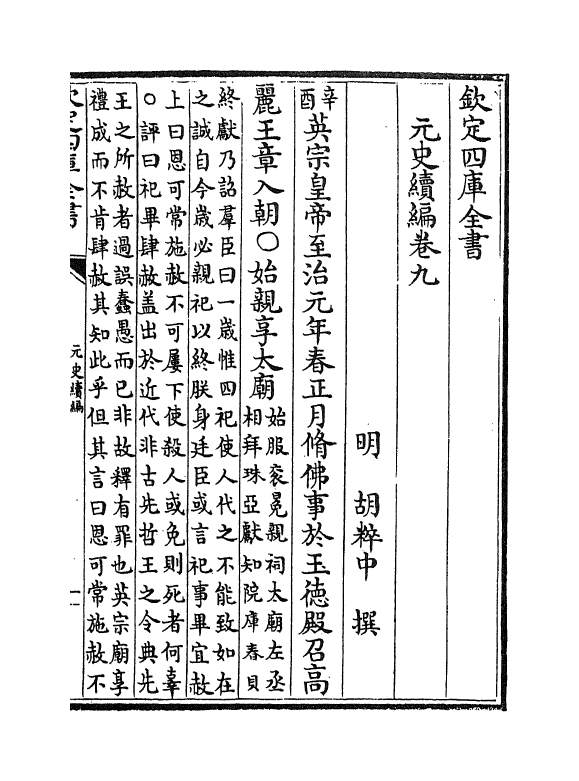 欽定四庫全書
元史續編卷九
明　胡粹中　撰
辛酉英宗皇帝至治元年春正月脩佛事於玉徳殿召高
麗王章入朝○始親享太廟
始服衮冕親祠太廟左丞
相拜珠亞獻知院庫春貝
終獻乃詔羣臣曰一歳惟四祀使人代之不能致如在
之誠自今歳必親祀以終朕身廷臣或言祀事畢宜赦
上曰恩可常施赦不可屢下使殺人或免則死者何辜
○評曰祀畢肆赦盖出於近代非古先哲王之令典先
王之所赦者過誤蠢愚而已非故釋有罪也英宗廟享
禮成而不肯肆赦其知此乎但其言曰恩可常施赦不
欽定四庫全書
元史續編
一